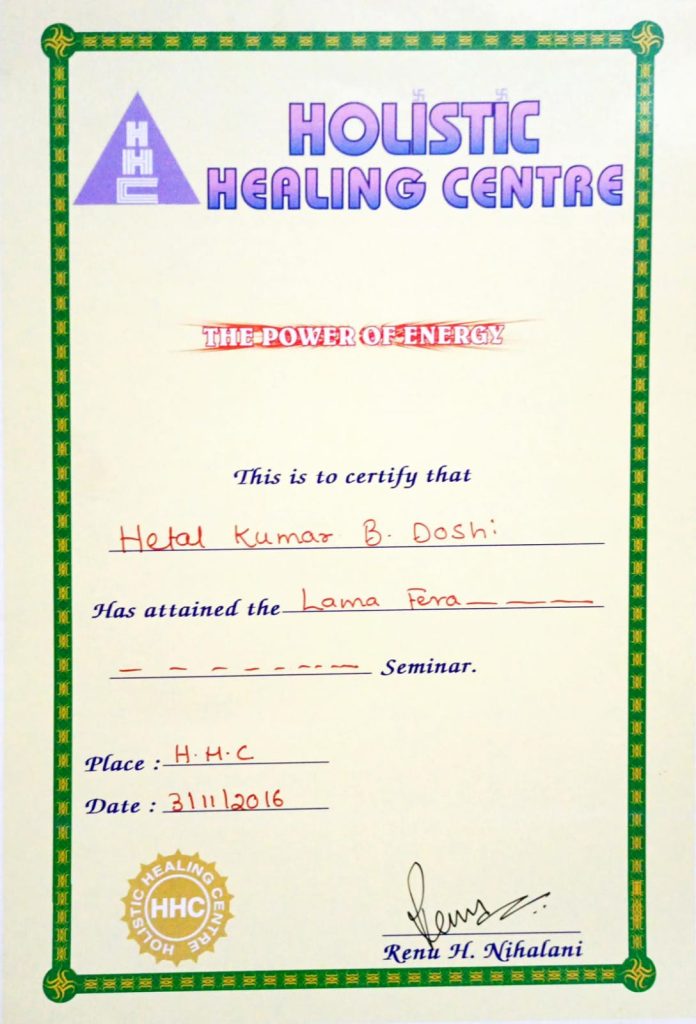 HHC
HOLISTIC
HEALING CENTRE
THE POWER OF ENERGY
This is to certify that
Hetal Kumar B. Doshi
Has attained the Lama Fera — — —
— — — — — — — Seminar.
Place : H.H.C
Date : 3/11/2016
HOLISTIC HEALING CENTRE
HHC
Renu
Renu H. Nihalani